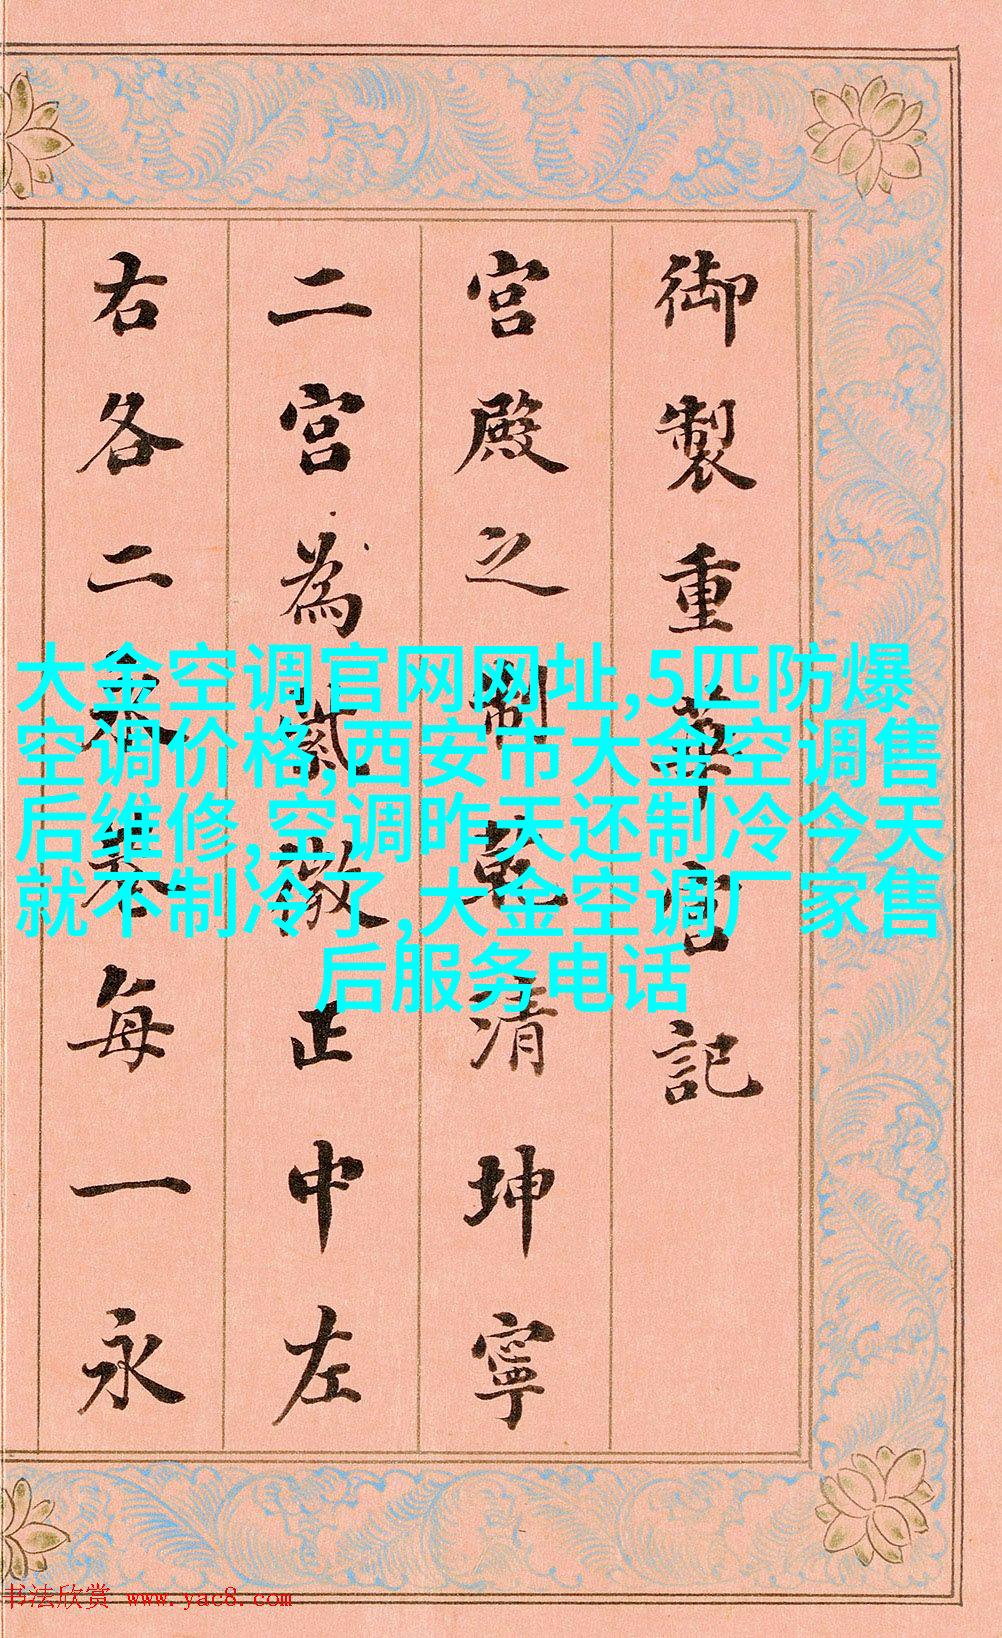 御製重華宮記
宮殿之制乾清坤寧
二宮為紫微正中左
右各二永巷每一永
大金空调官网网址,5匹防爆
空调价格,西安市大金空调售
后维修,空调昨天还制冷今天
就不制冷了,大金空调厂家售
后服务电话
书法欣赏 www.yac8.com